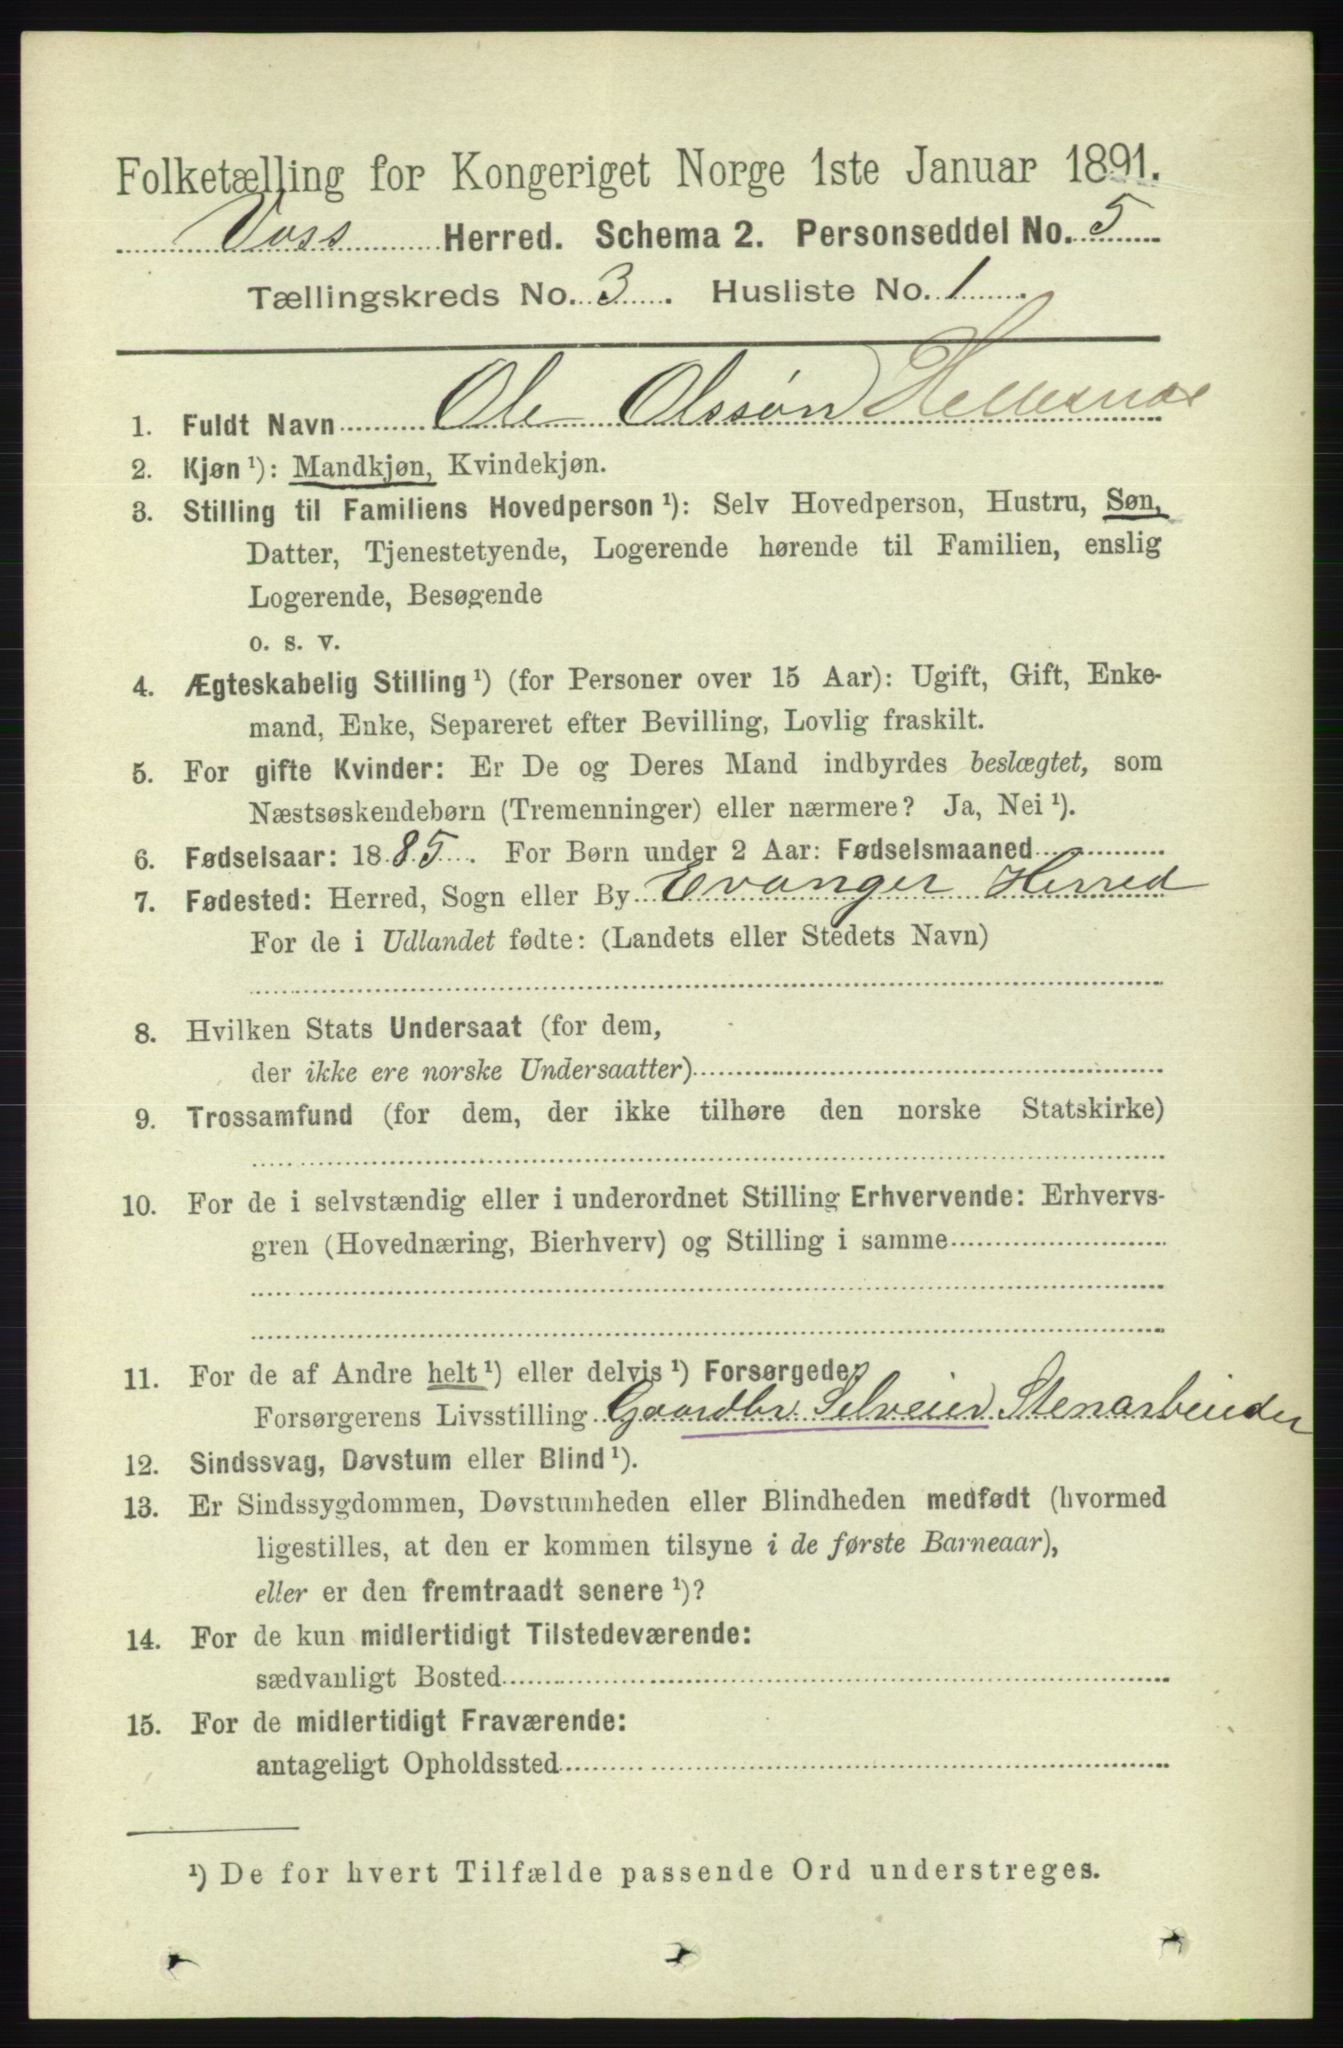 Folketælling for Kongeriget Norge 1ste Januar 1891.
Voss Herred. Schema 2. Personseddel No. 5
Tællingskreds No. 3. Husliste No. 1.
1. Fuldt Navn Ole Olssøn Hellesnæs
2. Kjøn ¹): Mandkjøn, Kvindekjøn.
3. Stilling til Familiens Hovedperson ¹): Selv Hovedperson, Hustru, Søn,
Datter, Tjenestetyende, Logerende hørende til Familien, enslig
Logerende, Besøgende
o. s. v.
4. Ægteskabelig Stilling ¹) (for Personer over 15 Aar): Ugift, Gift, Enke-
mand, Enke, Separeret efter Bevilling, Lovlig fraskilt.
5. For gifte Kvinder: Er De og Deres Mand indbyrdes beslægtet, som
Næstsøskendebørn (Tremenninger) eller nærmere? Ja, Nei ¹).
6. Fødselsaar: 1885. For Børn under 2 Aar: Fødselsmaaned
7. Fødested: Herred, Sogn eller By Evanger Herred
For de i Udlandet fødte: (Landets eller Stedets Navn)
8. Hvilken Stats Undersaat (for dem,
der ikke ere norske Undersaatter)
9. Trossamfund (for dem, der ikke tilhøre den norske Statskirke)
10. For de i selvstændig eller i underordnet Stilling Erhvervende: Erhvervs-
gren (Hovednæring, Bierhverv) og Stilling i samme
11. For de af Andre helt ¹) eller delvis ¹) Forsørgede,
Forsørgerens Livsstilling Gaardbr Selveier Stenarbeider
12. Sindssvag, Døvstum eller Blind ¹).
13. Er Sindssygdommen, Døvstumheden eller Blindheden medfødt (hvormed
ligestilles, at den er kommen tilsyne i de første Barneaar),
eller er den fremtraadt senere ¹)?
14. For de kun midlertidigt Tilstedeværende:
sædvanligt Bosted
15. For de midlertidigt Fraværende:
antageligt Opholdssted
¹) De for hvert Tilfælde passende Ord understreges.